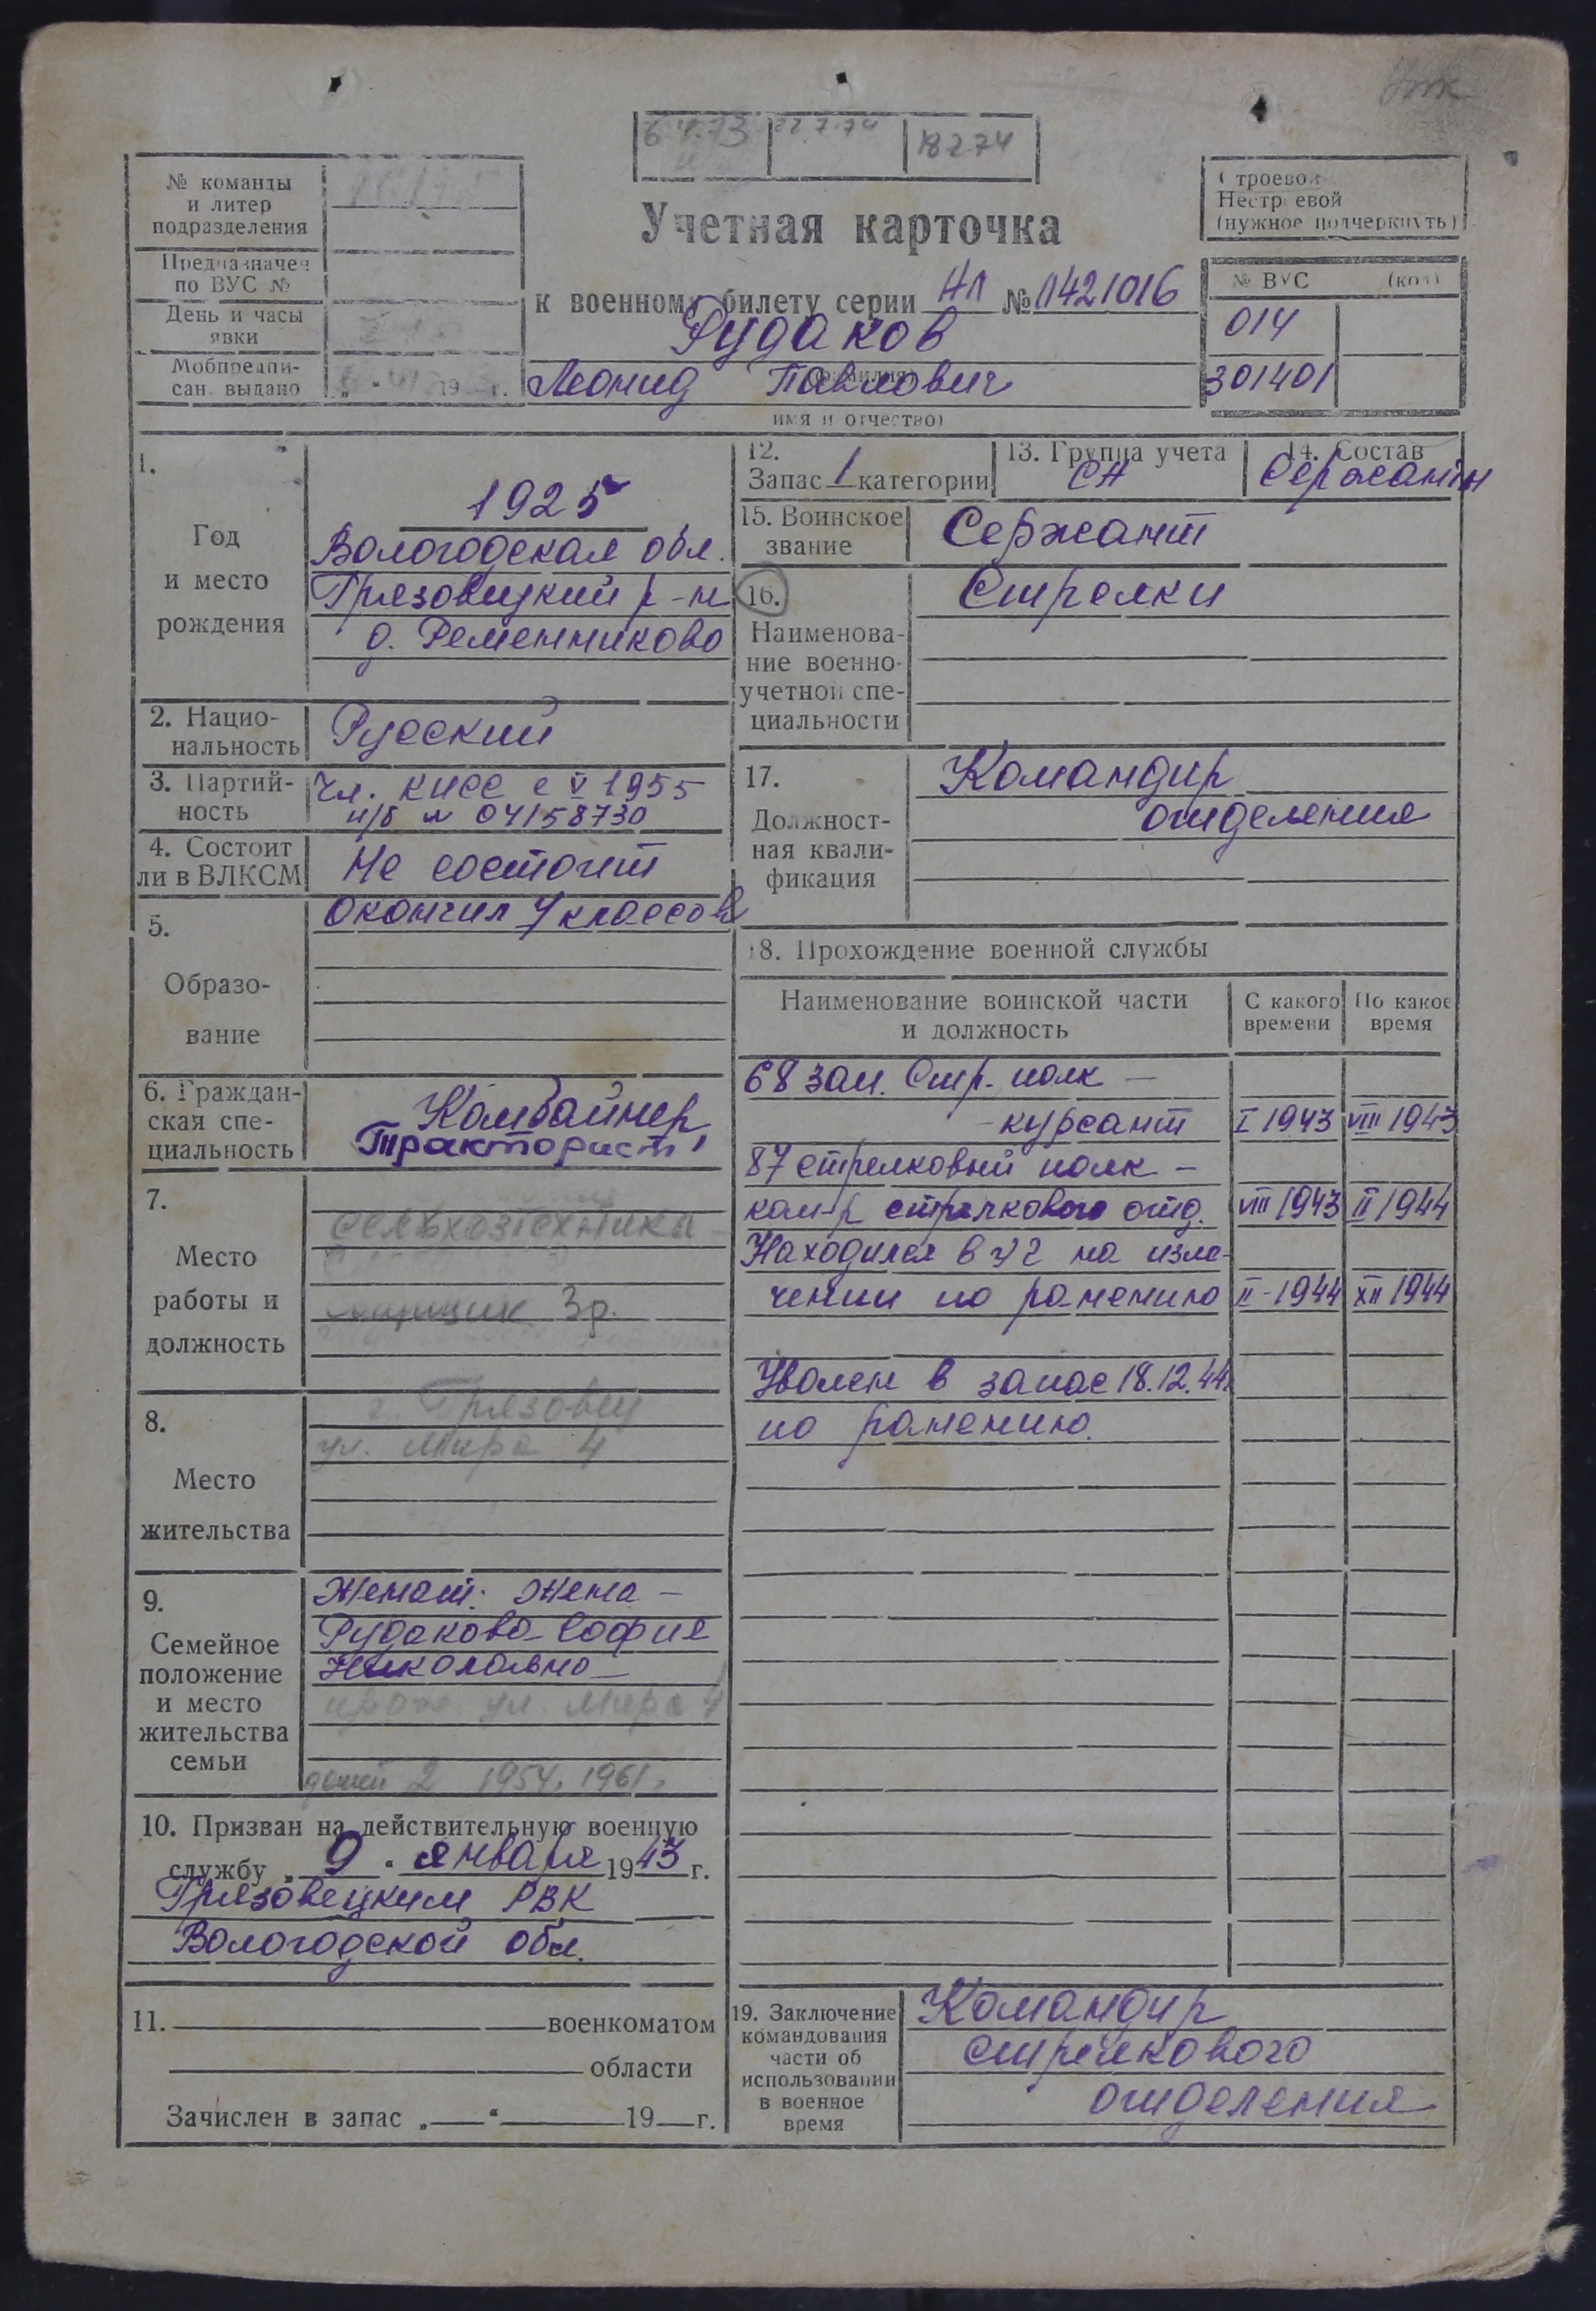 6.4.73 22.7.74 18274
№ команды
и литер
подразделения
Предназначен
по ВУС №
День и часы
явки
Мобпредпи-
сан. выдано
" 19 г.
Строевой
Нестроевой
(нужное подчеркнуть)
Учетная карточка
к военному билету серии НЛ № 1421016
Рудаков
(фамилия)
Леонид Павлович
имя и отчество)
№ ВУС (код)
014
301401
1.
Год
и место
рождения
1925
Вологодская обл.
Грязовецкий р-н
д. Ременниково
2. Нацио-
нальность
Русский
3. Партий-
ность
Чл. КПСС с V 1955
п/б № 04158730
4. Состоит
ли в ВЛКСМ
Не состоит
5.
Образо-
вание
Окончил 7 классов
6. Граждан-
ская спе-
циальность
Комбайнер
Тракторист
7.
Место
работы и
должность
сельхозтехника
3р.
8.
Место
жительства
г. Грязовец
ул. Мира 4
9.
Семейное
положение
и место
жительства
семьи
Женат. жена —
Рудакова София
Николаевна
прож. ул. Мира 4
детей 2 1954, 1961.
10. Призван на действительную военную
службу „ 9 " января 1943 г.
Грязовецким РВК
Вологодской обл.
11. военкоматом
области
Зачислен в запас „ " 19 г.
12.
Запас 1 категории
13. Группа учета
СА
14. Состав
Сержантск
15. Воинское
звание
Сержант
16.
Наименова-
ние военно-
учетной спе-
циальности
Стрелки
17.
Должност-
ная квали-
фикация
Командир
отделения
18. Прохождение военной службы
Наименование воинской части
и должность
С какого
времени
По какое
время
68 зап. Стр. полк —
- курсант I 1943 VIII 1943
87 стрелковый полк —
ком-р стрелкового отд. VIII 1943 II 1944
Находился в ЭГ на изле-
чении по ранению II-1944 XII 1944
Уволен в запас 18.12.44
по ранению.
19. Заключение
командования
части об
использовании
в военное
время
Командир
стрелкового
отделения